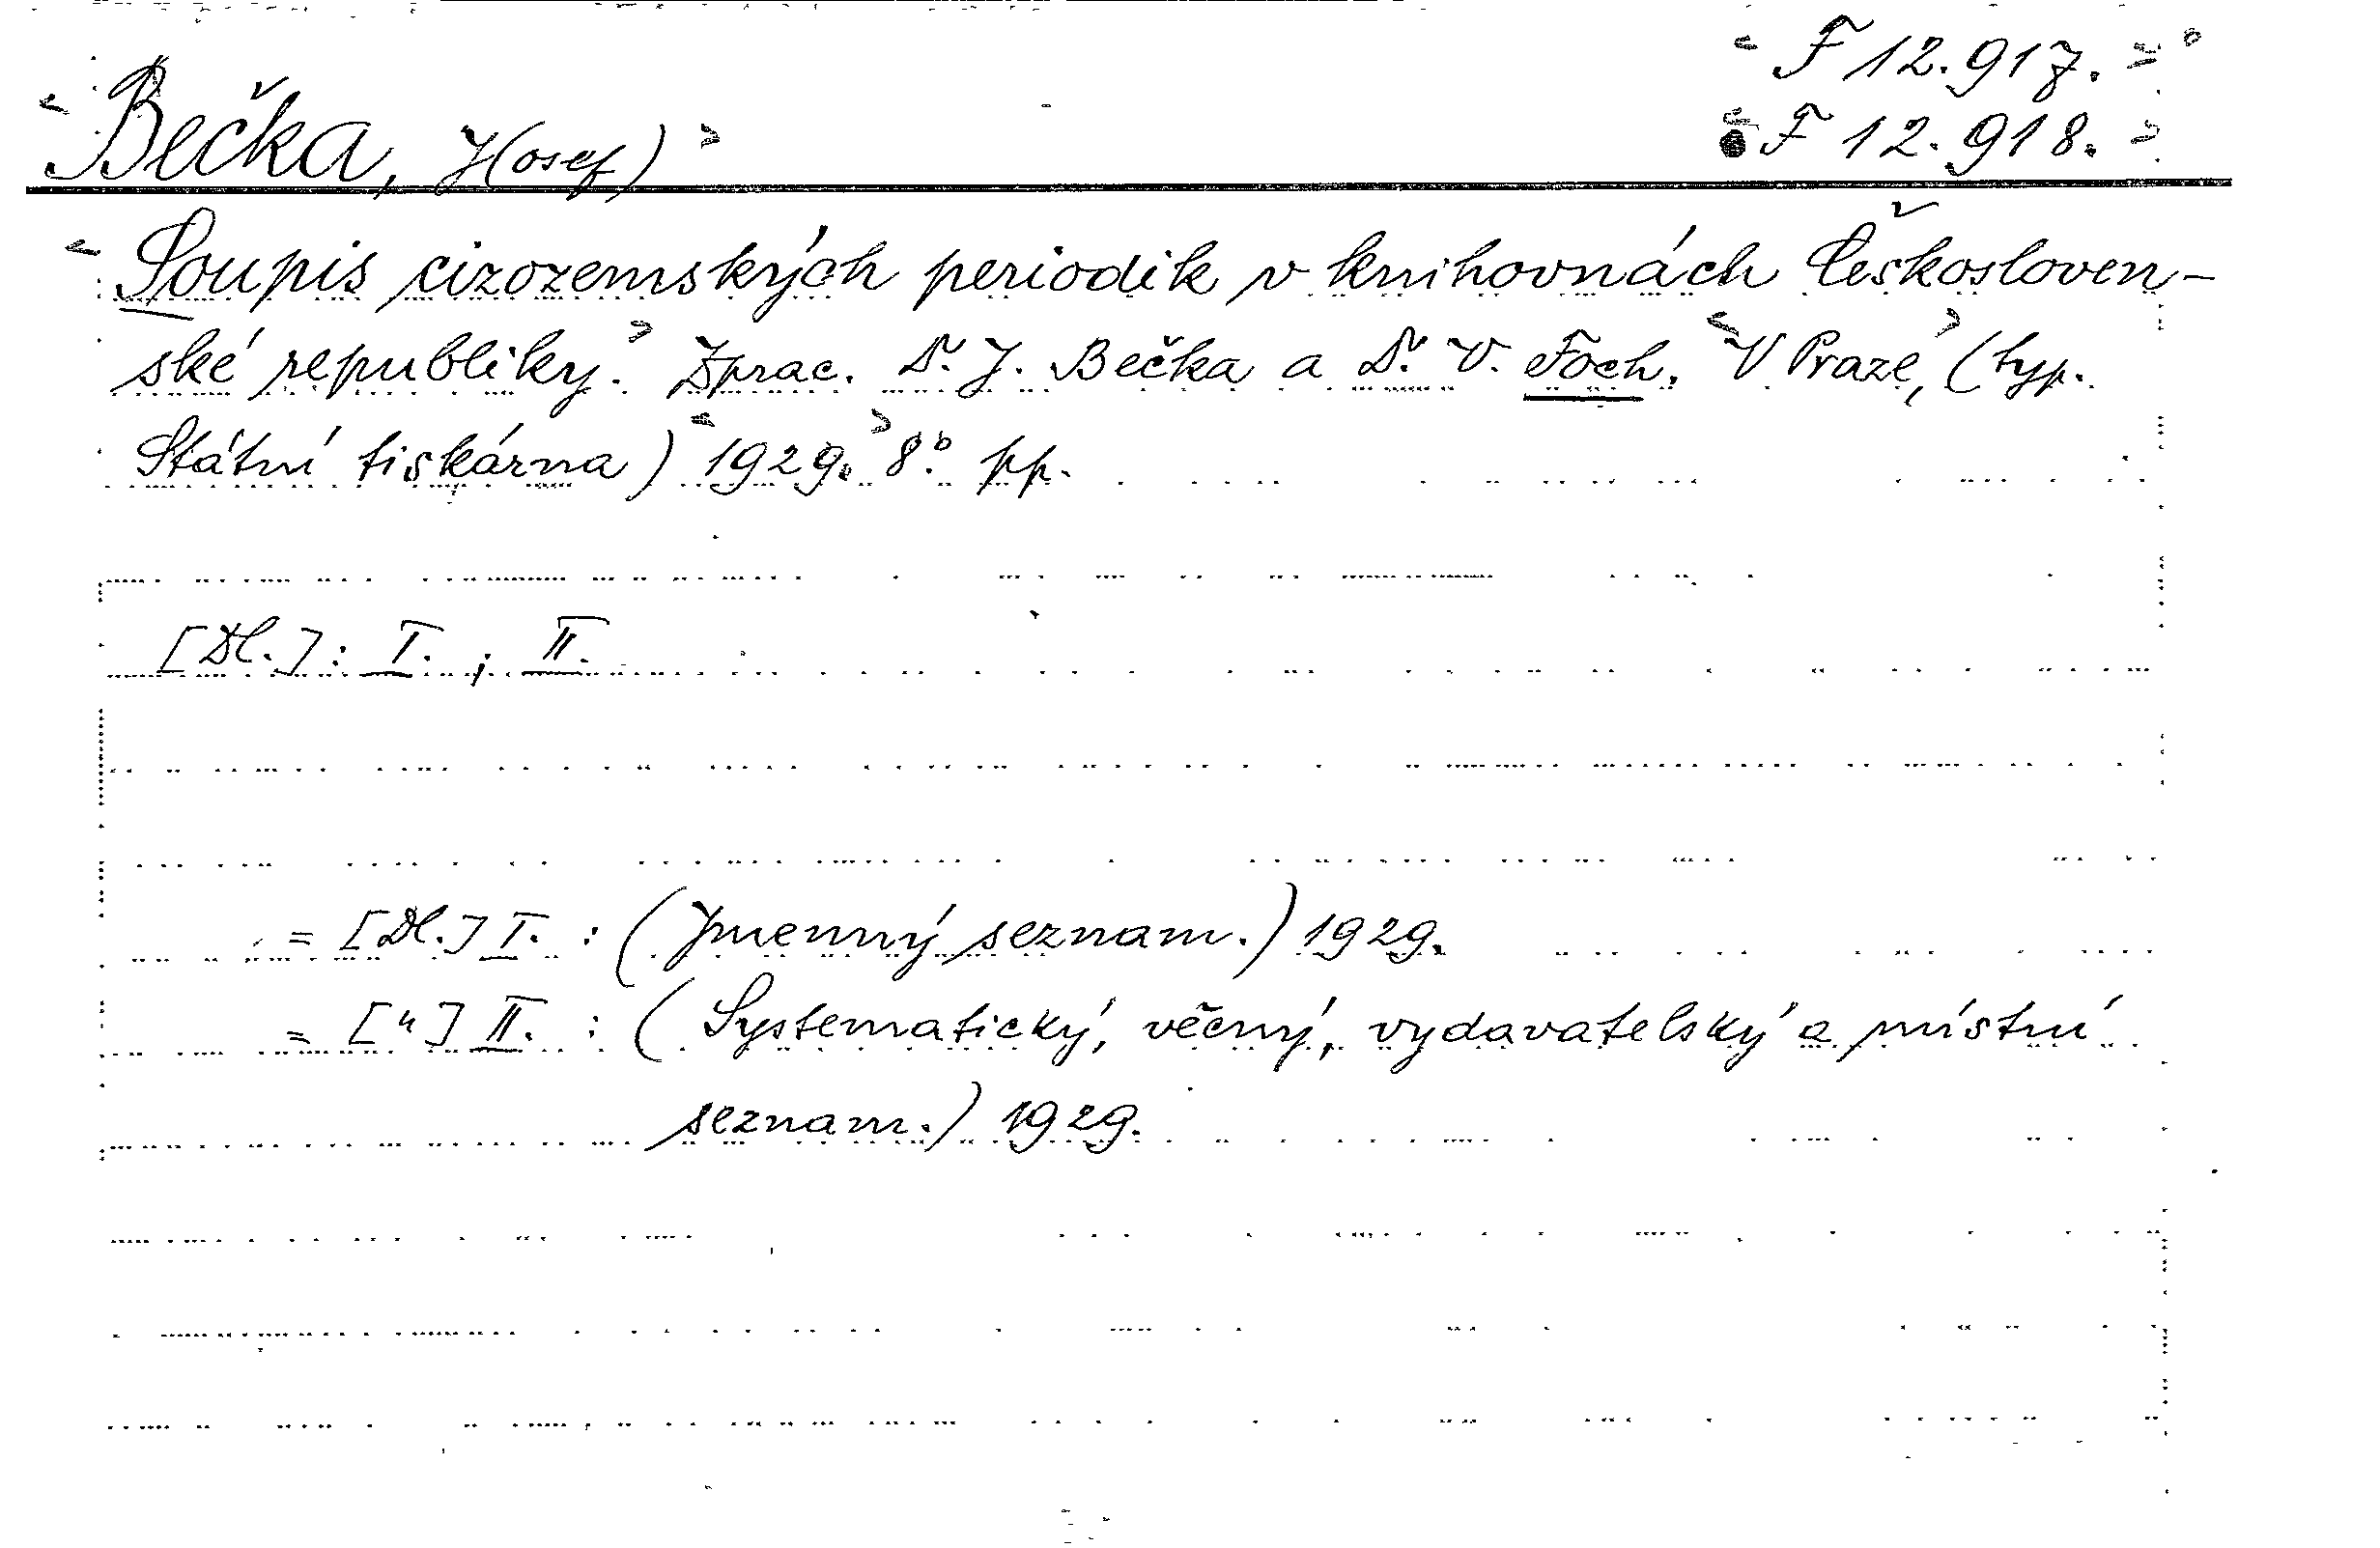 F 12.917.
Bečka, J(osef)
F 12.918.
Soupis cizozemských periodik v knihovnách Českosloven-
ské republiky. Zprac. Dr. J. Bečka a Dr. V. Foch. V Praze, (typ.
Státní tiskárna) 1929. 8° pp.
[Dl.]: I. ; II.
= [Dl.] I. : (Jmenný seznam.) 1929.
= [„] II. : (Systematický, věcný, vydavatelský a místní
seznam.) 1929.